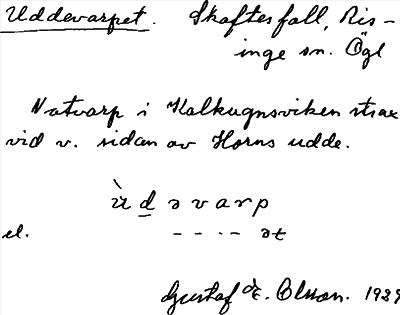 Uddevarpet. Skaftesfall, Ris-
inge sn. Ögl
Notvarp i Kalkugnsviken strax
vid v. sidan av Horns udde.
ùd̲əvarp
el. - - - - ət
Gustaf Olsson. 1929